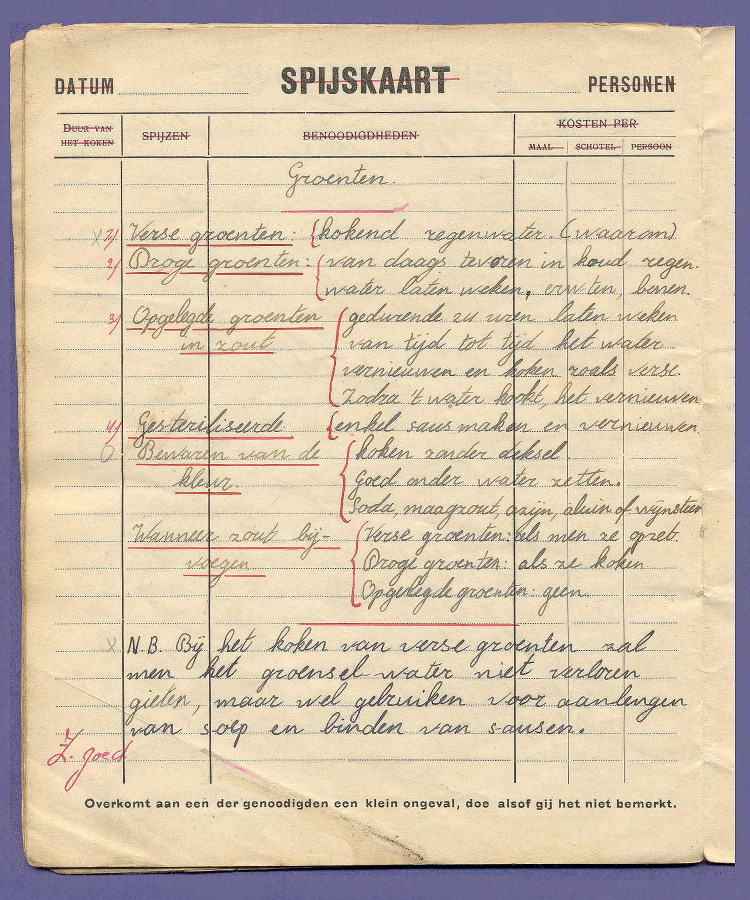 DATUM SPIJSKAART PERSONEN
DUUR VAN HET KOKEN SPIJZEN BENOODIGDHEDEN KOSTEN PER
MAAL SCHOTEL PERSOON
Groenten.
x 1/ Verse groenten: { kokend regenwater. (waarom)
2/ Droge groenten: { van daags tevoren in koud regen-
water laten weken, erwten, bonen.
3/ Opgelegde groenten { gedurende 24 uren laten weken
in zout van tijd tot tijd het water
vernieuwen en koken zoals verse.
Zodra 't water kookt, het vernieuwen
4/ Gesteriliseerde { enkel saus maken en vernieuwen
Bewaren van de { koken zonder deksel.
kleur. Goed onder water zetten.
Soda, maagzout, azijn, aluin of wijnsteen
Wanneer zout bij- { Verse groenten: als men ze opzet.
voegen Droge groenten: als ze koken
Opgelegde groenten: geen.
x N.B. Bij het koken van verse groenten zal
men het groensel water niet verloren
gieten, maar wel gebruiken voor aanlengen
van soep en binden van sausen.
Z. goed
Overkomt aan een der genoodigden een klein ongeval, doe alsof gij het niet bemerkt.